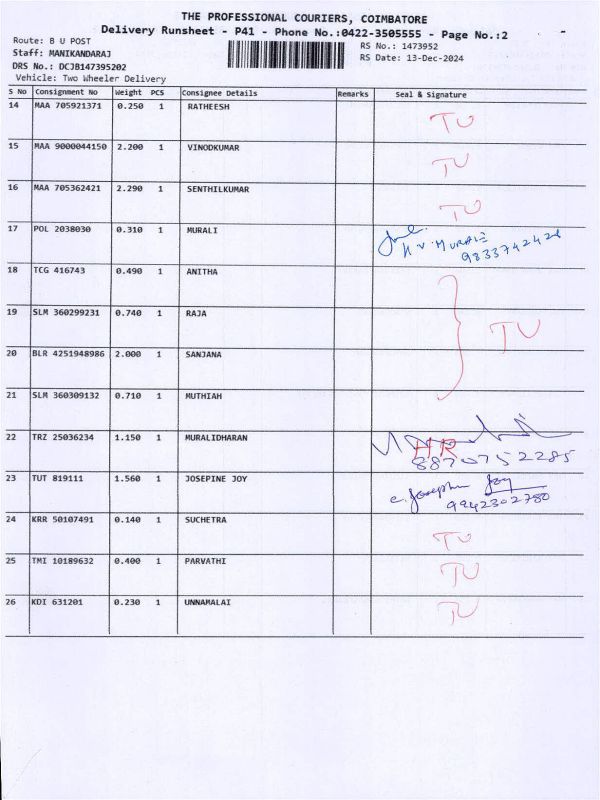 THE PROFESSIONAL COURIERS, COIMBATORE
Delivery Runsheet - P41 - Phone No.:0422-3505555 - Page No.:2
Route: B U POST
Staff: MANIKANDARAJ
DRS No.: DCJB147395202
Vehicle: Two Wheeler Delivery
RS No.: 1473952
RS Date: 13-Dec-2024
S No Consignment No Weight PCS Consignee Details Remarks Seal & Signature
14 MAA 705921371 0.250 1 RATHEESH TU
15 MAA 9000044150 2.200 1 VINODKUMAR TU
16 MAA 705362421 2.290 1 SENTHILKUMAR TU
17 POL 2038030 0.310 1 MURALI N.V.MURALI
9833742424
18 TCG 416743 0.490 1 ANITHA
19 SLM 360299231 0.740 1 RAJA TU
20 BLR 4251948986 2.000 1 SANJANA
21 SLM 360309132 0.710 1 MUTHIAH
22 TRZ 25036234 1.150 1 MURALIDHARAN HR
8870752285
23 TUT 819111 1.560 1 JOSEPINE JOY c. Josephin Joy
9942302780
24 KRR 50107491 0.140 1 SUCHETRA TU
25 TMI 10189632 0.400 1 PARVATHI TU
26 KDI 631201 0.230 1 UNNAMALAI TU